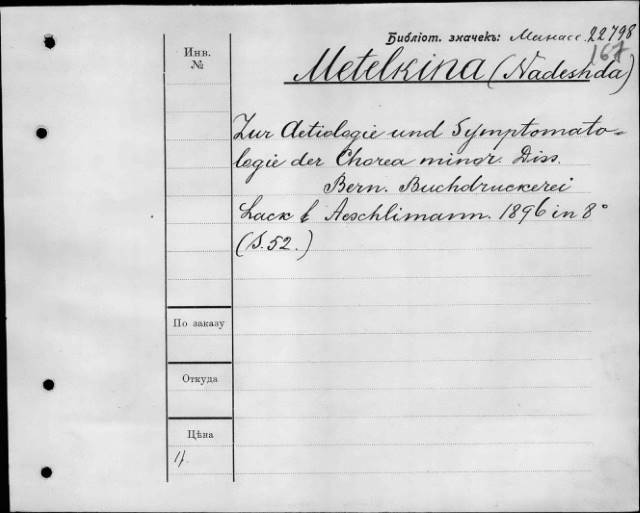 Библіот. значекъ: Манасс. 22798
167
Инв.
№
Metelkina (Nadeshda)
Zur Aetiologie und Symptomato-
logie der Chorea minor. Diss.
Bern. Buchdruckerei
Lack & Aeschlimann. 1896 in 8°
(S. 52.)
По заказу
Откуда
Цѣна